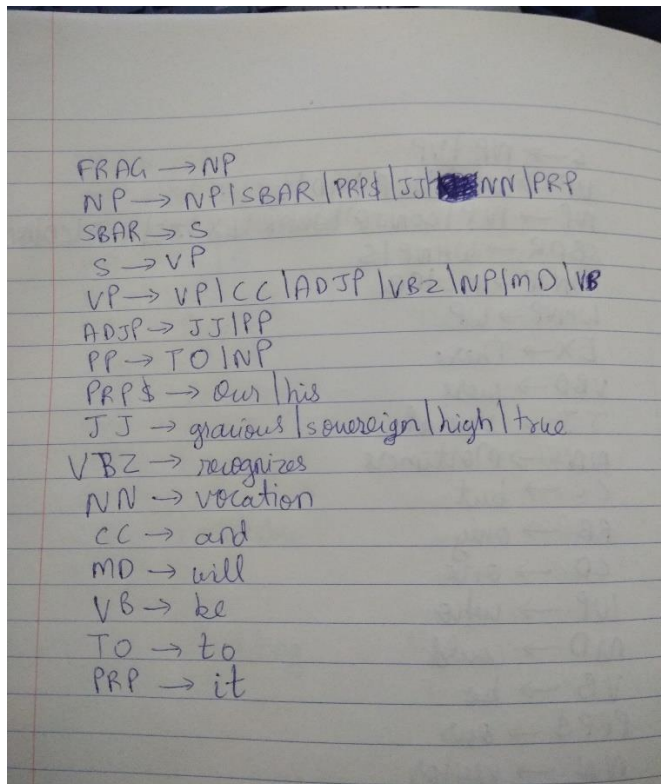 FRAG → NP
NP → NP | SBAR | PRP$ | JJ | NN | PRP
SBAR → S
S → VP
VP → VP | CC | ADJP | VBZ | NP | MD | VB
ADJP → JJ | PP
PP → TO | NP
PRP$ → Our | his
JJ → gracious | sovereign | high | true
VBZ → recognizes
NN → vocation
CC → and
MD → will
VB → be
TO → to
PRP → it